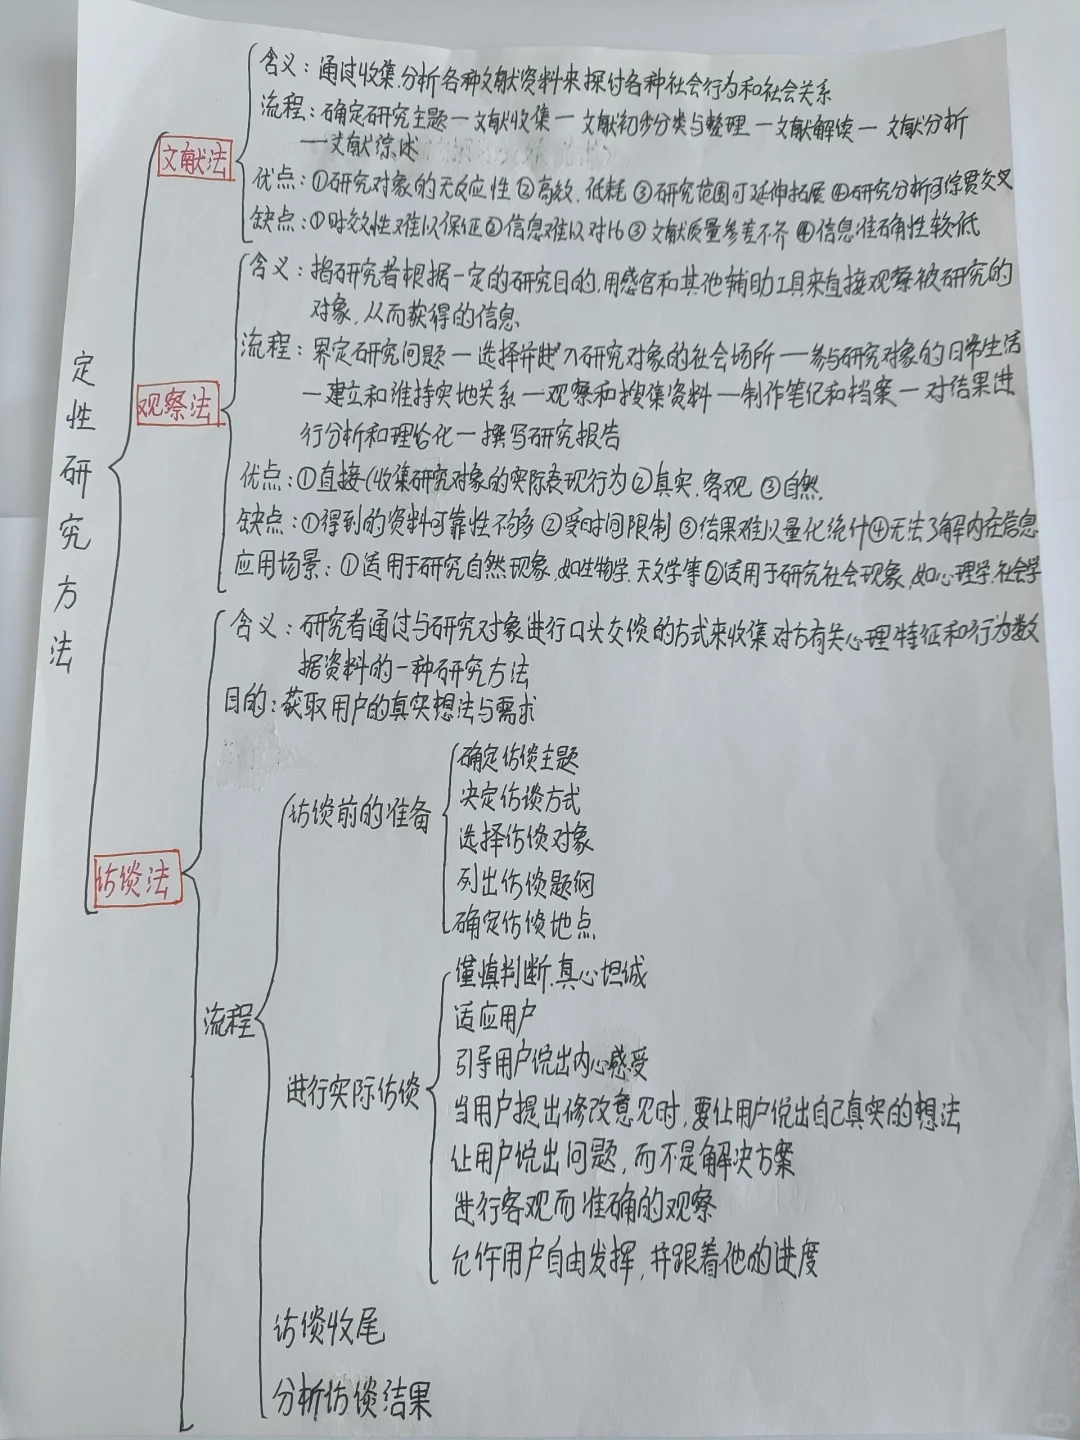 定性研究方法
文献法
含义：通过收集.分析各种文献资料来探讨各种社会行为和社会关系
流程：确定研究主题—文献收集—文献初步分类与整理—文献解读—文献分析
—文献综述
优点：①研究对象的无反应性②高效.低耗③研究范围可延伸拓展④研究分析可综贯交叉
缺点：①时效性难以保证②信息难以对比③文献质量参差不齐④信息准确性较低
观察法
含义：指研究者根据一定的研究目的,用感官和其他辅助工具来直接观察被研究的
对象,从而获得的信息
流程：界定研究问题—选择并进入研究对象的社会场所—参与研究对象的日常生活
—建立和维持实地关系—观察和搜集资料—制作笔记和档案—对结果进
行分析和理论化—撰写研究报告
优点：①直接(收集研究对象的实际表现行为②真实.客观③自然.
缺点：①得到的资料可靠性不够②受时间限制③结果难以量化统计④无法了解内在信息
应用场景：①适用于研究自然现象,如生物学.天文学等②适用于研究社会现象,如心理学.社会学
访谈法
含义：研究者通过与研究对象进行口头交谈的方式来收集对方有关心理特征和行为数
据资料的一种研究方法
目的：获取用户的真实想法与需求
流程
访谈前的准备
确定访谈主题
决定访谈方式
选择访谈对象
列出访谈题纲
确定访谈地点
进行实际访谈
谨慎判断.真心坦诚
适应用户
引导用户说出内心感受
当用户提出修改意见时,要让用户说出自己真实的想法
让用户说出问题,而不是解决方案
进行客观而准确的观察
允许用户自由发挥,并跟着他的进度
访谈收尾
分析访谈结果